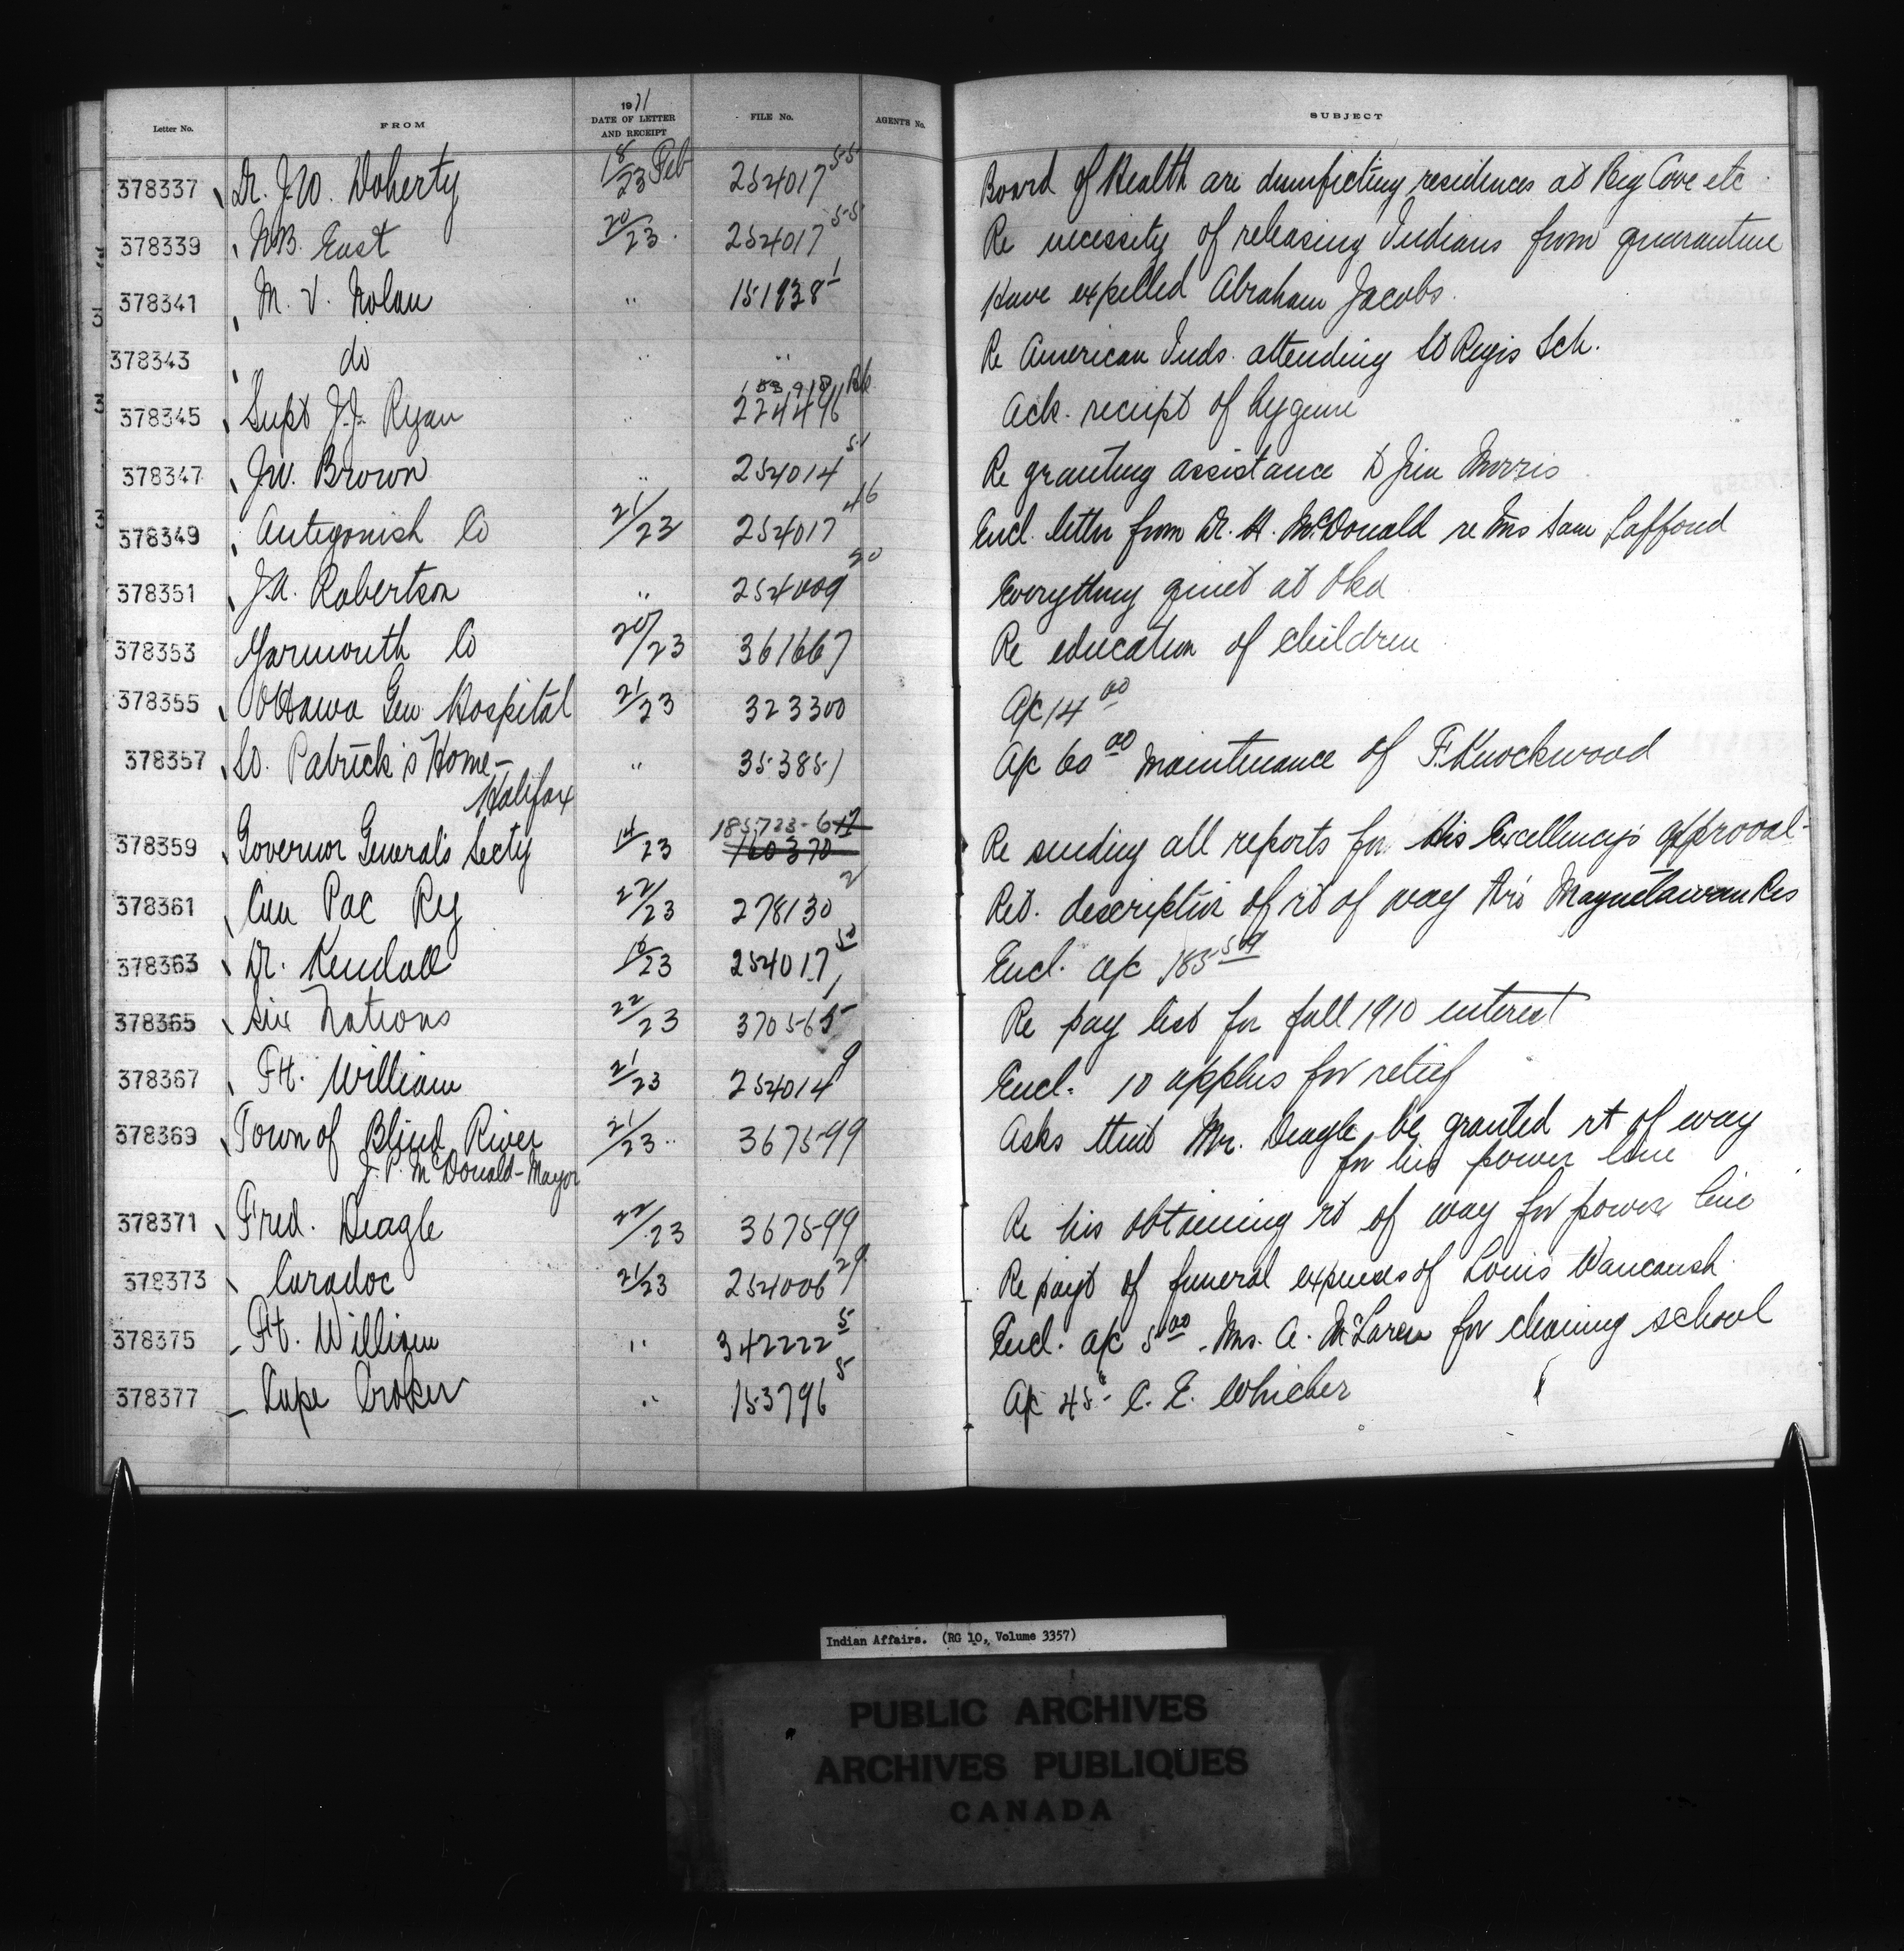 Letter No. FROM 1911 DATE OF LETTER AND RECEIPT FILE No. AGENT'S No. SUBJECT
378337 Dr. J.W. Doherty 18/23 Feb 254017 55 Board of Health are disinfecting residences at Big Cove etc
378339 N.B. East 20/23 254017 55 Re necessity of releasing Indians from quarantine
378341 M. V. Nolan " 151938 1 Have expelled Abraham Jacobs
378343 " do " " Re American Inds. attending St Regis Sch.
378345 Supt J.J. Ryan " 224496 Ack. receipt of hygiene
378347 J.W. Brown " 254014 51 Re granting assistance to Jim Morris
378349 Antigonish Co 21/23 254017 46 Encl. letter from Dr. H. McDonald re Mrs Sam Lafford
378351 J.A. Robertson " 254009 20 Everything quiet at Oka
378353 Yarmouth Co 20/23 361667 Re education of children
378355 Ottawa Gen Hospital 21/23 323300 A/c 14 00
378357 St. Patrick's Home - " 353851 A/c 60 00 maintenance of F. Knockwood
Halifax
378359 Governor General's Secty 14/23 185723-6 160370 Re sending all reports for His Excellency's approval -
378361 Can Pac Ry 22/23 278130 2 Ret. description of rt of way thro Magnetawan Res
378363 Dr. Kendall 18/23 254017 50 Encl. a/c 185 50
378365 Six Nations 22/23 370565 Re pay list for fall 1910 interest
378367 Ft. William 21/23 254014 9 Encl. 10 applns for relief
378369 Town of Blind River 21/23 367599 Asks that Mr. Deagle be granted rt of way
J. P. McDonald - Mayor for his power line
378371 Fred. Deagle 22/23 367599 Re his obtaining rt of way for power line
378373 Caradoc 21/23 254006 29 Re payt of funeral expenses of Louis Waucaush
378375 Ft. William " 342222 5 Encl. a/c 5 00 - Mrs. A. McLaren for cleaning school
378377 Cape Croker " 153796 5 A/c 45 - C. E. Whicher
Indian Affairs. (RG 10, Volume 3357)
PUBLIC ARCHIVES
ARCHIVES PUBLIQUES
CANADA